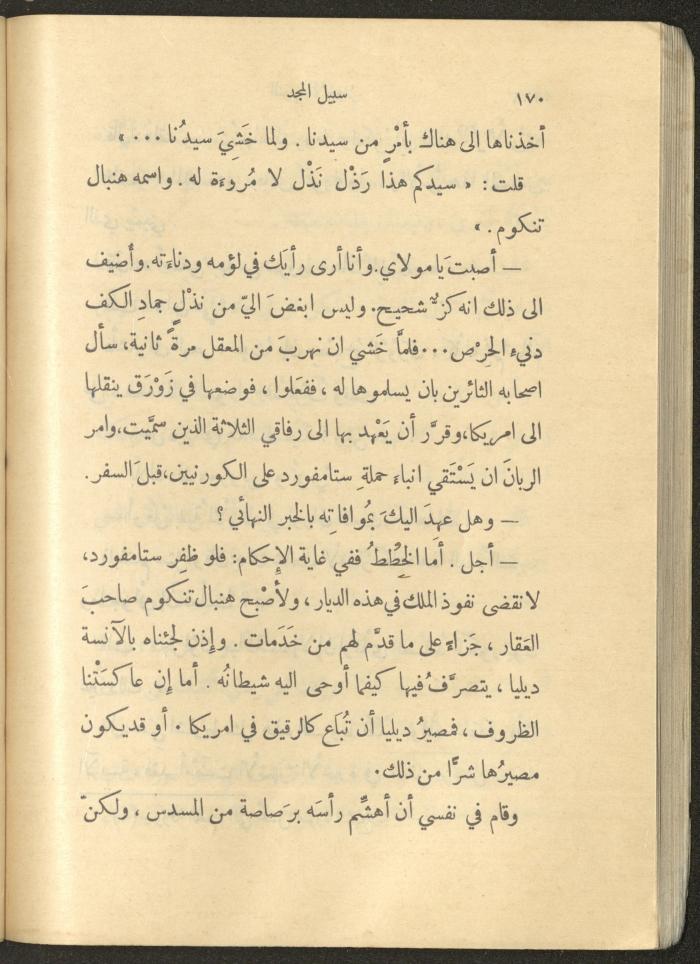 ١٧٠
سبيل المجد
أخذناها الى هناك بأمْرٍ من سيدنا . ولما خَشِيَ سيدُنا ... »
قلت : « سيدكم هذا رَذْل نَذْل لا مُروءة له . واسمه هنبال
تنكوم . »
— أصبت يَا مولاي . وأنا أرى رأيَك في لؤمه ودناءته . وأضيف
الى ذلك انه كزٌّ شحيح . وليس ابغضَ اليّ من نذْلٍ جمادِ الكف
دنيء الحِرْص ... فلمَّا خَشي ان نهربَ من المعقل مرةً ثانية ، سأل
اصحابه الثائرين بان يسلموها له ، ففعَلوا ، فوضعها في زَوْرَق ينقلها
الى امريكا ، وقرَّر أن يَعْهد بها الى رفاقي الثلاثة الذين سمَّيت ، وامر
الربانَ ان يَسْتَقي انباء حملةِ ستامفورد على الكورنيين ، قبلَ السفر .
— وهل عهِدَ اليكَ بمُوافاتِه بالخبر النهائي ؟
— أجل . أما الخِططُ ففي غاية الإحكام : فلو ظفِر ستامفورد ،
لانقضى نفوذ الملك في هذه الديار ، ولأصْبح هنبال تنكوم صاحبَ
العَقار ، جَزاء على ما قدَّم لهم من خَدَمات . وإذن لجئناه بالآنسة
ديليا ، يتصرَّفُ فيها كيفما أوحى اليه شيطانُه . أما إن عاكسَتْنا
الظروف ، فمصيرُ ديليا أن تُباع كالرقيق في امريكا . أو قد يكون
مصيرُها شرًّا من ذلك .
وقام في نفسي أن أهشِّم رأسَه برَصاصة من المسدس ، ولكنّ